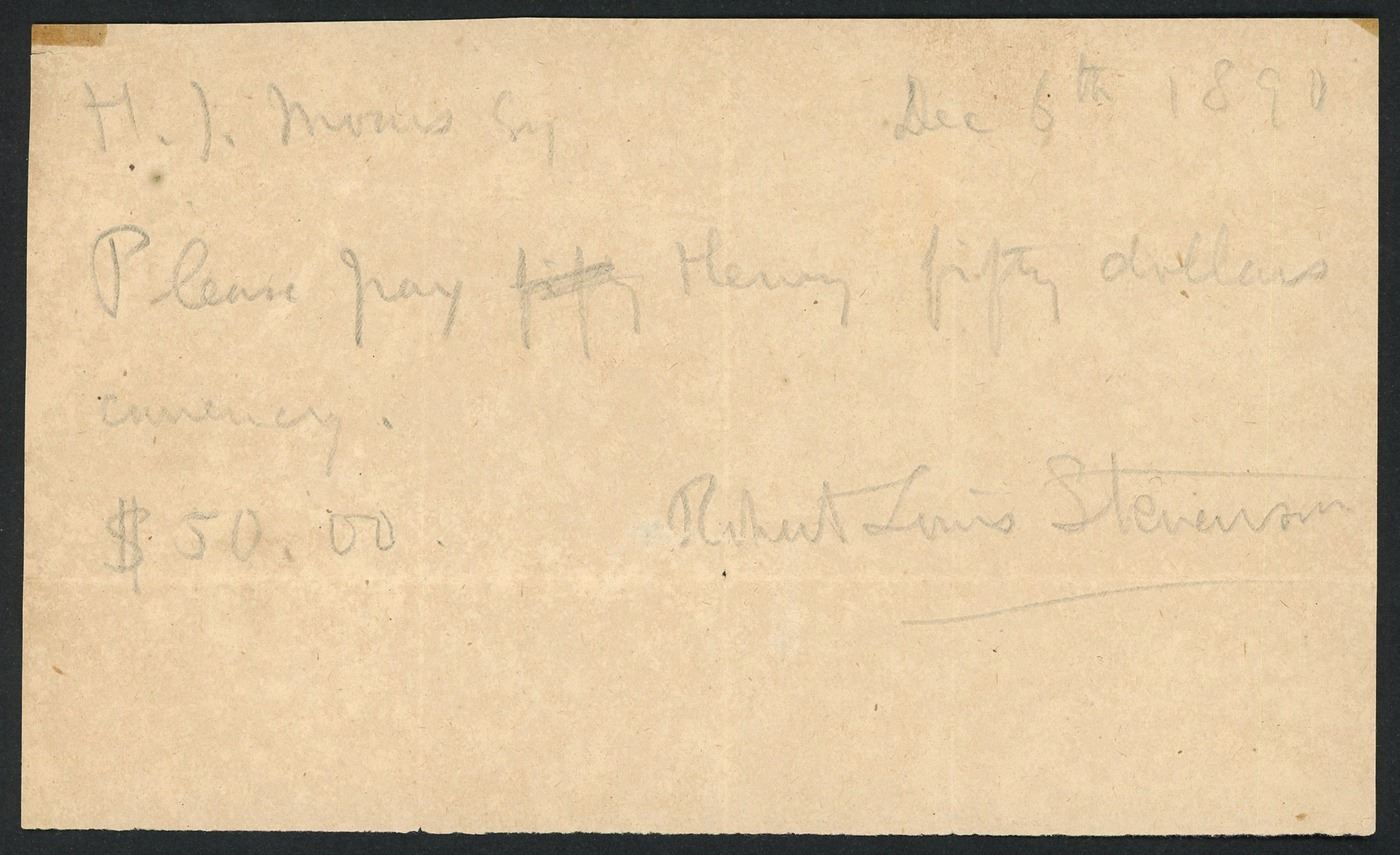 H. J. Moors Esq Dec 6th 1890
Please pay fifty Henry fifty dollars
currency.
$50.00.
Robert Louis Stevenson